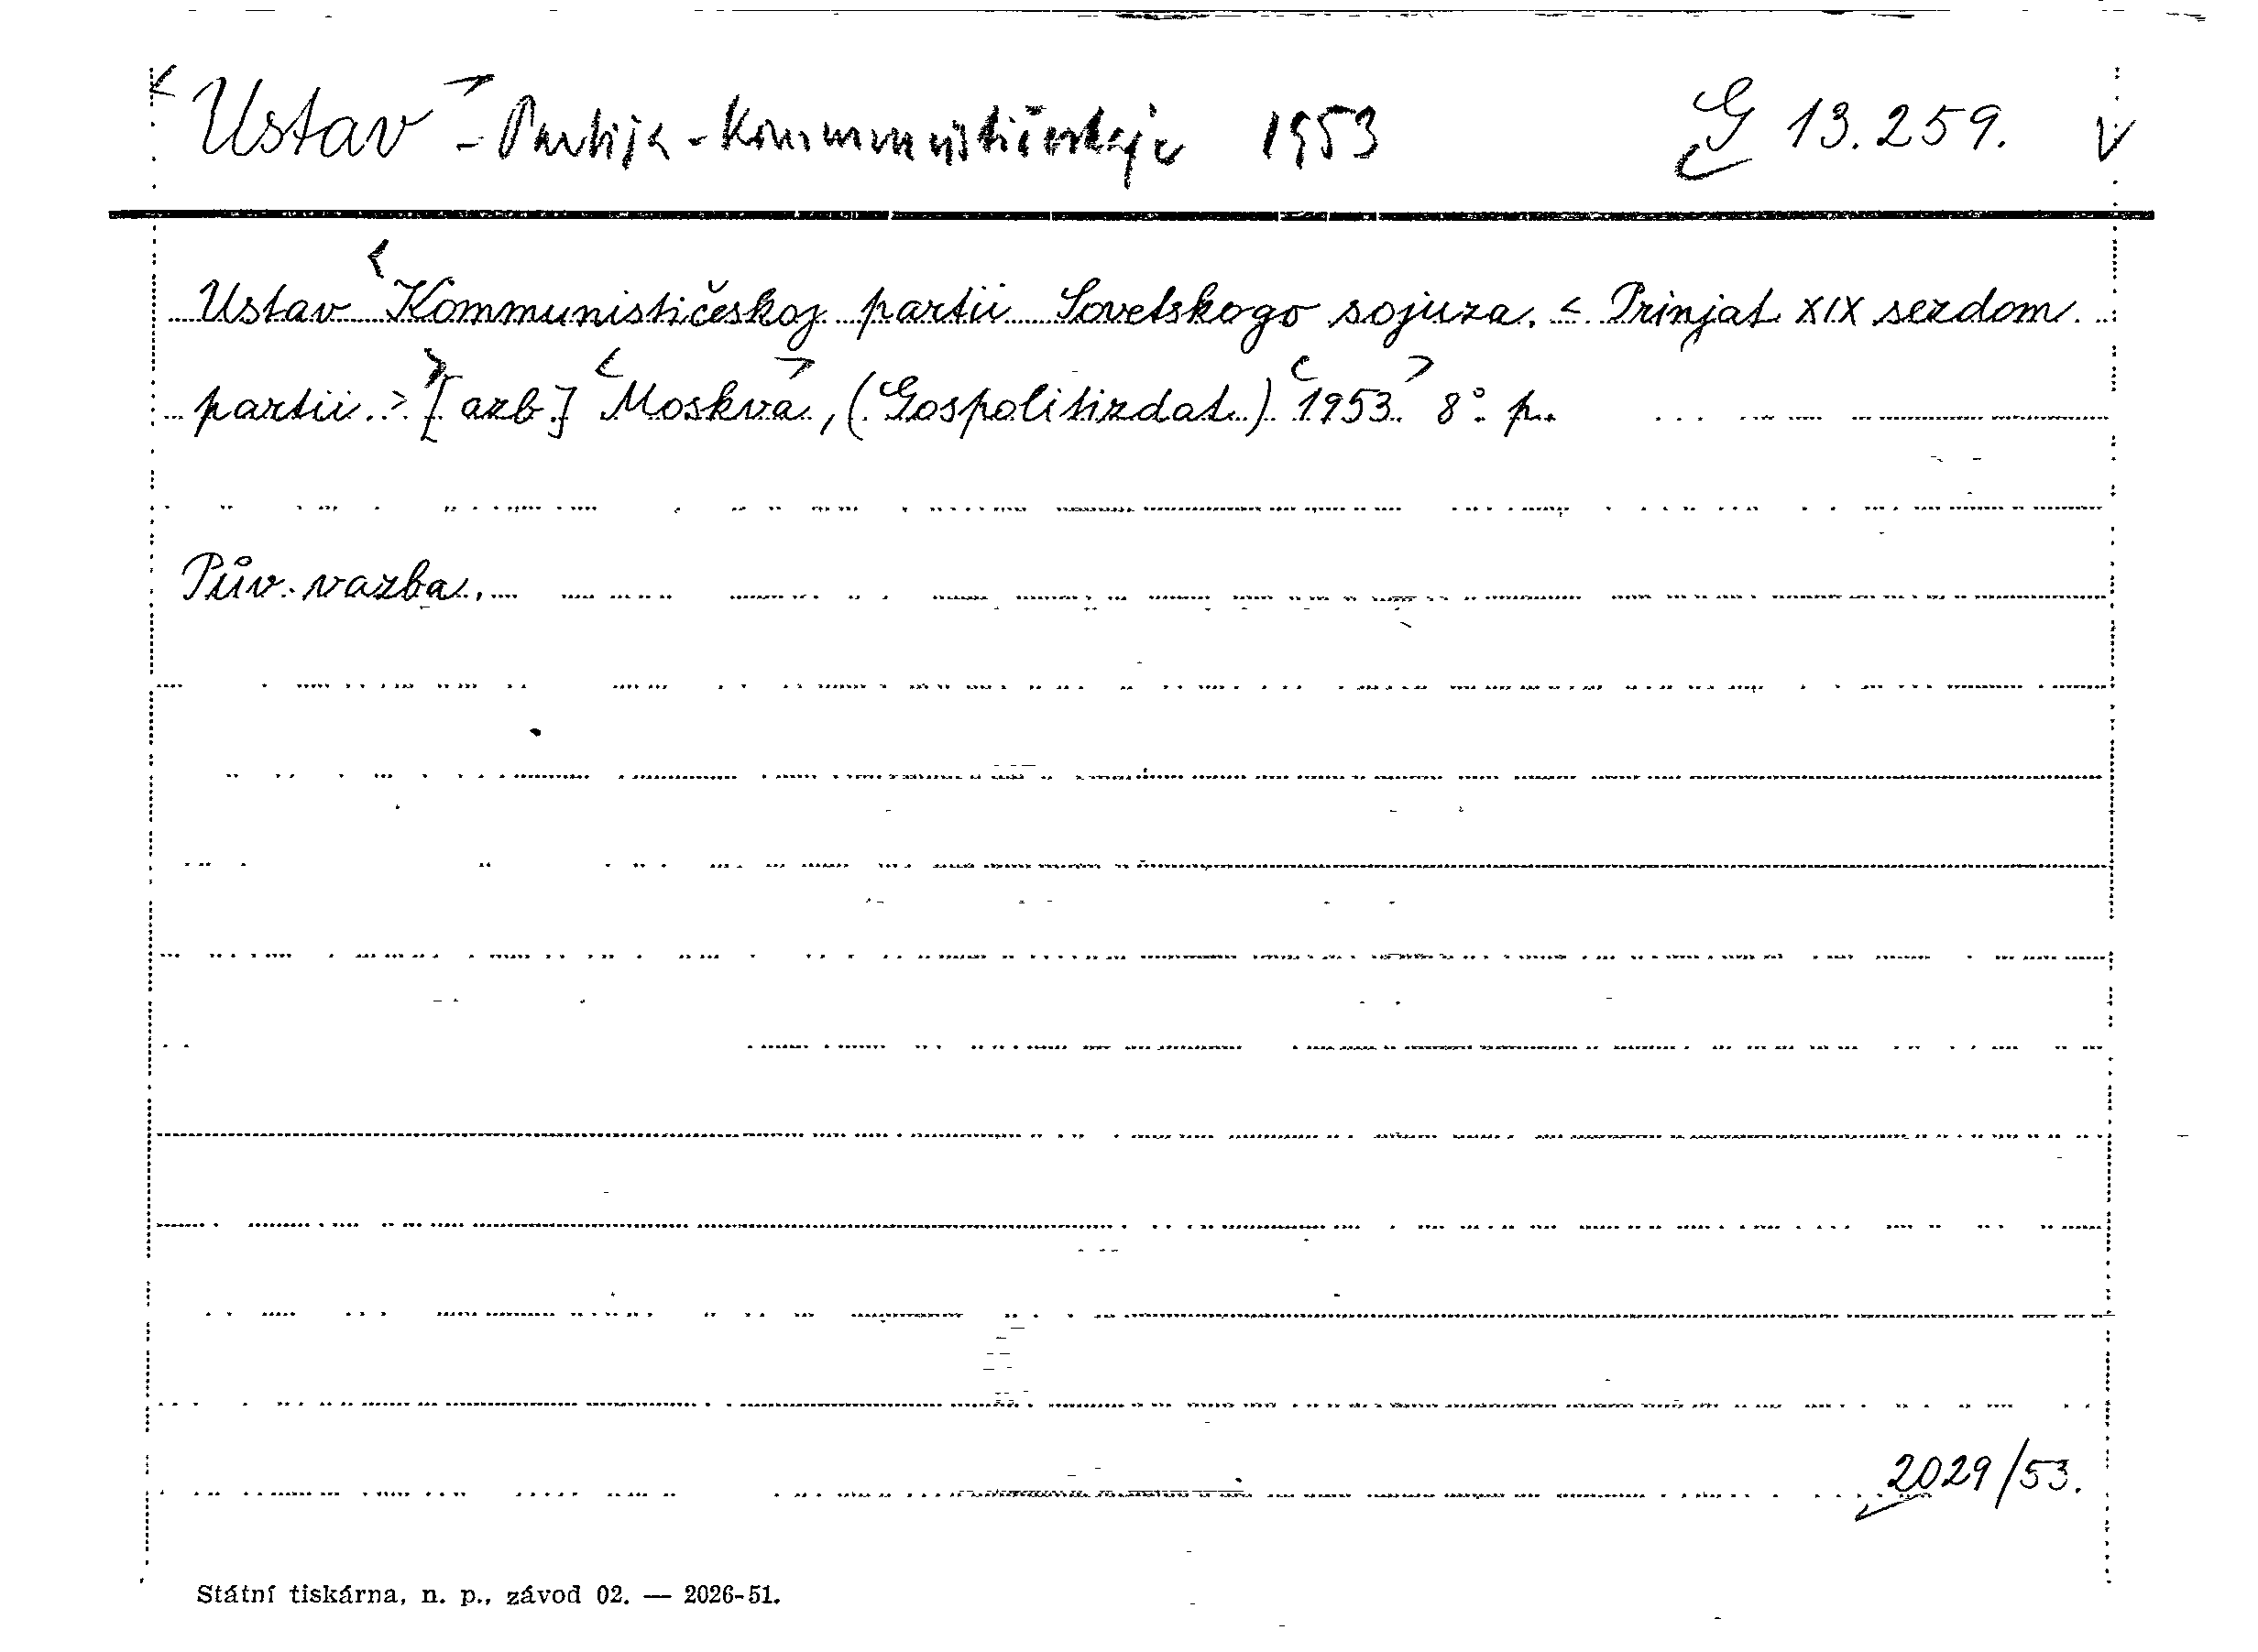 < Ustav > - Partija - Kommunističeskaja 1953 G 13.259. V
Ustav < Kommunističeskoj partii Sovetskogo sojuza. < Prinjat XIX sezdom
partii. > > [azb.] < Moskva >, (Gospolitizdat.) < 1953 > 8°. p.
Pův. vazba.
2029/53.
Státní tiskárna, n. p., závod 02. — 2026-51.